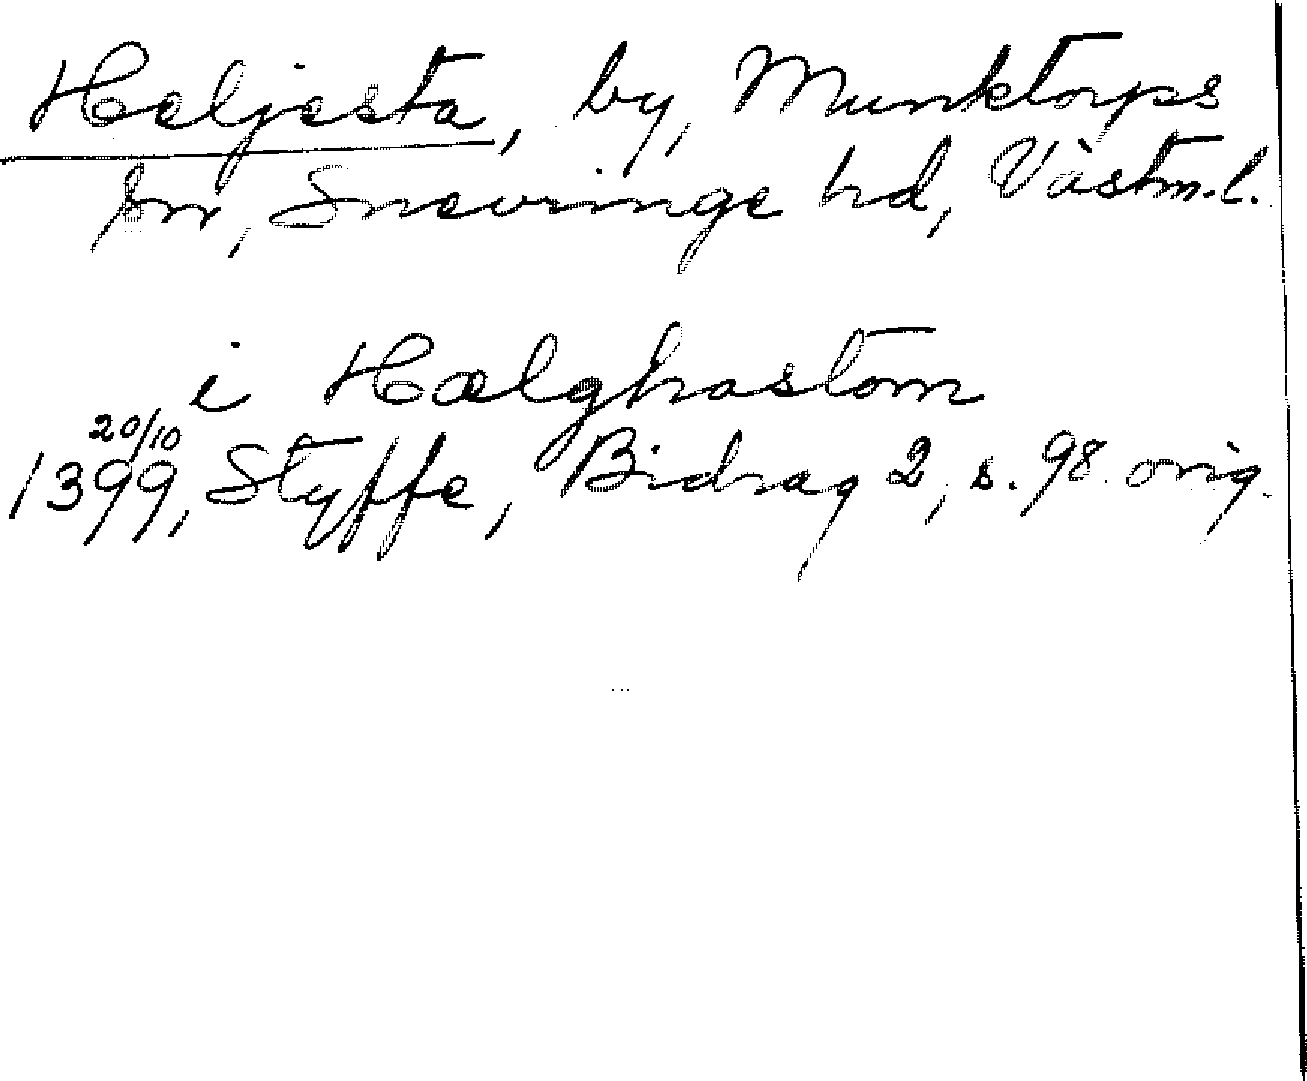 Heljesta, by, Munktorps
sn, Snevringe hd, Västm.l.
i Hælghastom
20/10
1399, Styffe, Bidrag 2, s. 98. orig.